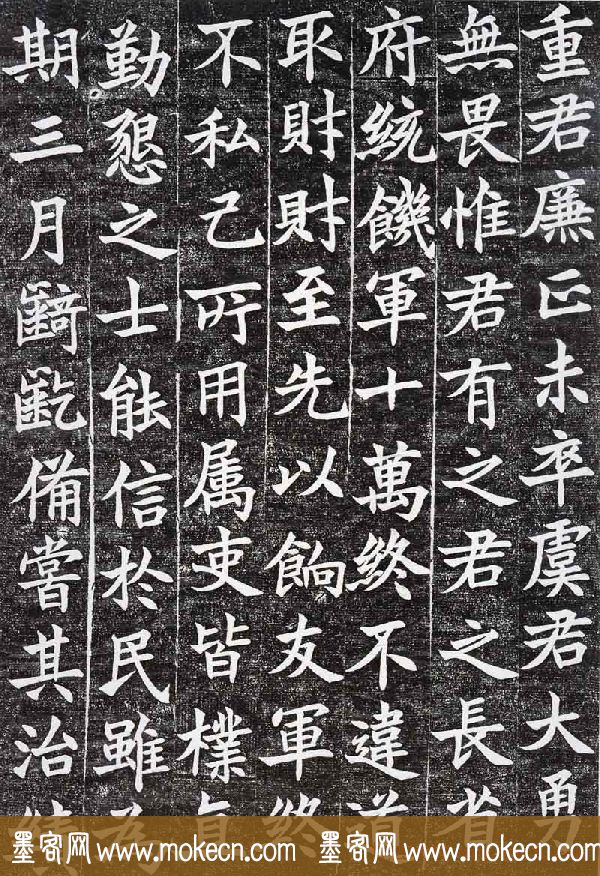 重君廉正未卒虞君大勇
無畏惟君有之君之長省
府統饑軍十萬終不違道
取財財至先以餉友軍終
不私己所用属吏皆樸
勤懇之士能信於民雖
期三月齮齕備嘗其治績
墨客网 www.mokecn.com 墨客网 www.mokecn.com